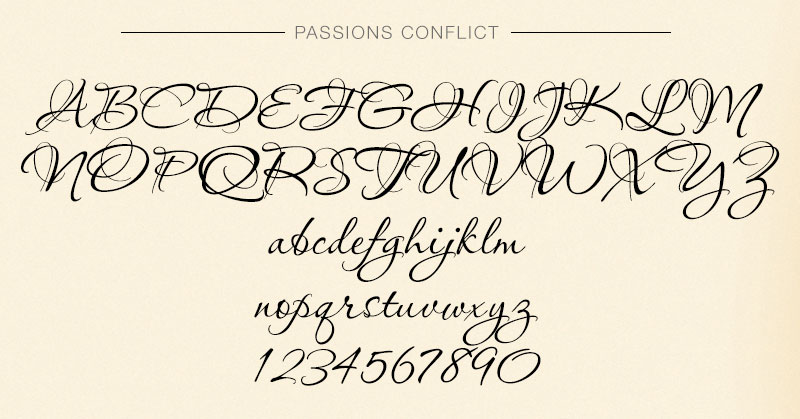 PASSIONS CONFLICT
ABCDEFGHIJKLM
NOPQRSTUVWXYZ
abcdefghijklm
nopqrstuvwxyz
1234567890